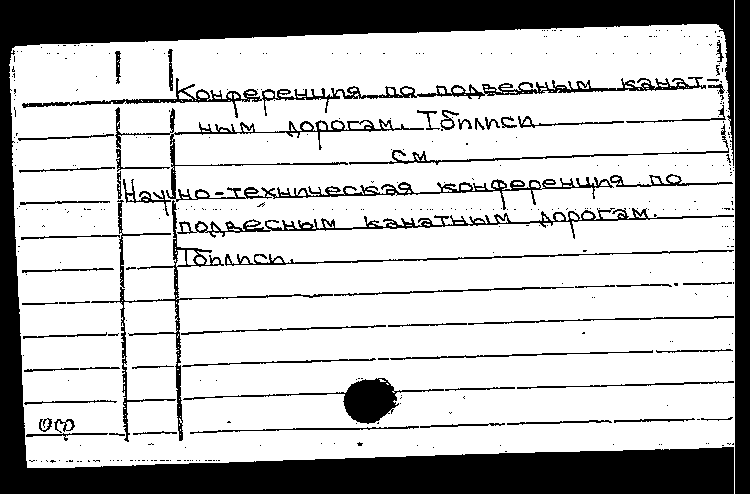 Конференция по подвесным канат-
ным дорогам. Тбилиси
см.
Научно-техническая конференция по
подвесным канатным дорогам.
Тбилиси.